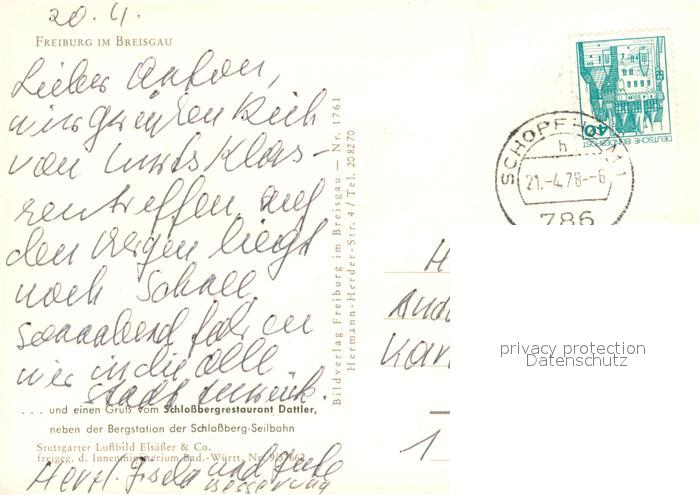 20. 4.
FREIBURG IM BREISGAU
Lieber Anton,
wir grüßen Dich
vom Klas-
sentreffen, auf
den Bergen liegt
noch Schnee,
Sonnabend fahren
wir in die alte
Stadt zurück.
... und einen Gruß vom Schloßbergrestaurant Dattler,
neben der Bergstation der Schloßberg-Seilbahn
Stuttgarter Luftbild Elsäßer & Co.
freigeg. d. Innenministerium Bad.-Württ. Nr.
Herzl. Gisela und
Besserung
Bildverlag Freiburg im Breisgau — Nr. 1761
Hermann-Herder-Str. 4 / Tel. 208270
DEUTSCHE BUNDESPOST
40
SCHOPFHEIM 1
h
21.-4.78--6
786
H
Kar
1
privacy protection
Datenschutz